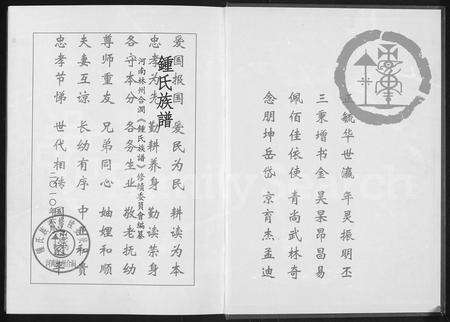 毓华世瀛 年炅振明丕
三秉增书金 昊杲昂昌易
佩佰佳依使 青尚武林奇
念朋坤岳岱 京育杰孟迪
爱国报国 爱民为民 耕读为本
忠孝为先 勤耕养身 勤读荣身
鍾氏族譜
河南林州合澗《鍾氏族譜》修續委員會編纂
各守本分 各务生业 敬老抚幼
尊师重友 兄弟同心 妯娌和顺
夫妻互谅 长幼有序 和贵
忠孝节悌 世代相传
二〇一〇年